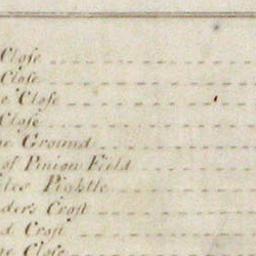 Close
Close
Close
Close
Ground
of Pinion Field
Pightle
Croft
Croft
Close